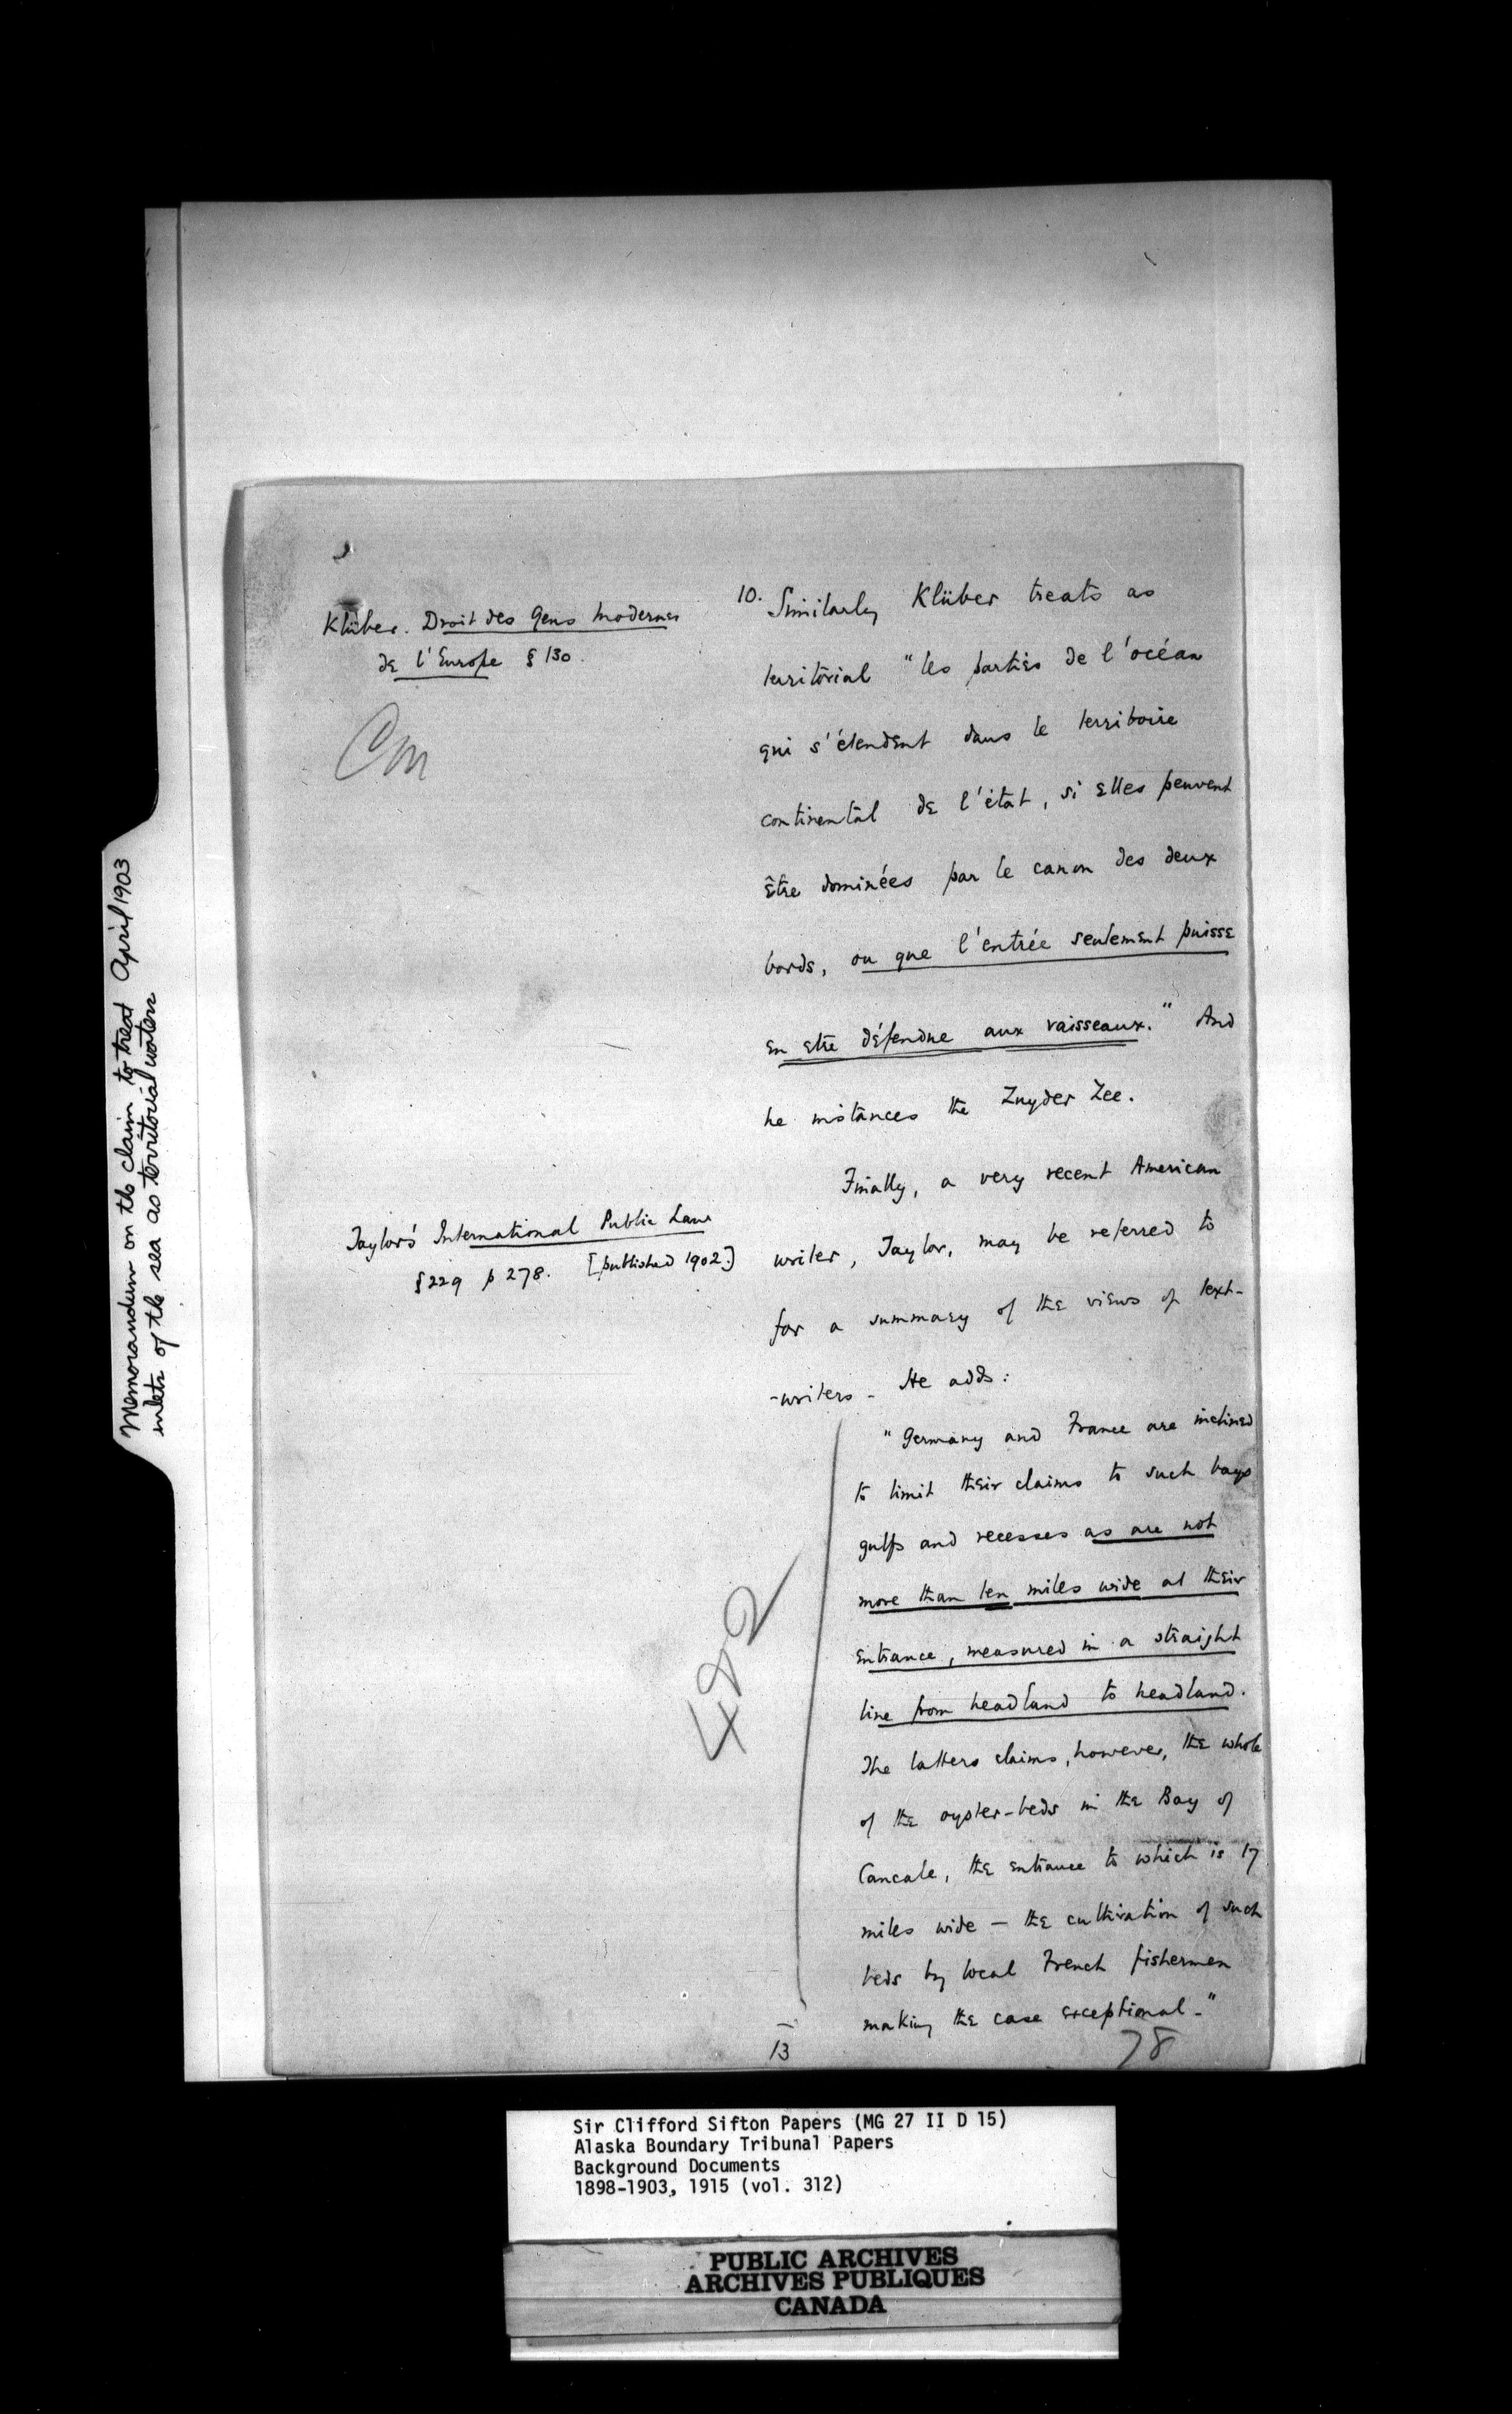 Memorandum on the claim to treat April 1903
inlets of the sea as territorial waters
Klüber. Droit des Gens Modernes
de l'Europe § 130.
10. Similarly Klüber treats as
territorial "les parties de l'océan
qui s'étendent dans le territoire
continental de l'état, si elles peuvent
être dominées par le canon des deux
bords, ou que l'entrée seulement puisse
en etre défendue aux vaisseaux." And
he instances the Zuyder Zee.
Finally, a very recent American
Taylor's International Public Law
§229 p 278. [published 1902.]
writer, Taylor, may be referred to
for a summary of the views of text-
-writers - He adds:
"Germany and France are inclined
to limit their claims to such bays
gulfs and recesses as are not
more than ten miles wide at their
entrance, measured in a straight
line from headland to headland.
The latters claims, however, the whole
of the oyster-beds in the Bay of
Cancale, the entrance to which is 17
miles wide — the cultivation of such
beds by local French fishermen
making the case exceptional-"
482
13
78
Sir Clifford Sifton Papers (MG 27 II D 15)
Alaska Boundary Tribunal Papers
Background Documents
1898-1903, 1915 (vol. 312)
PUBLIC ARCHIVES
ARCHIVES PUBLIQUES
CANADA